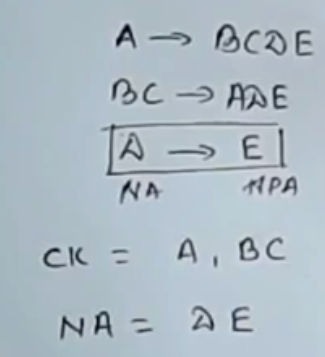 A → BCDE
BC → ADE
D → E
NA NPA
CK = A, BC
NA = DE